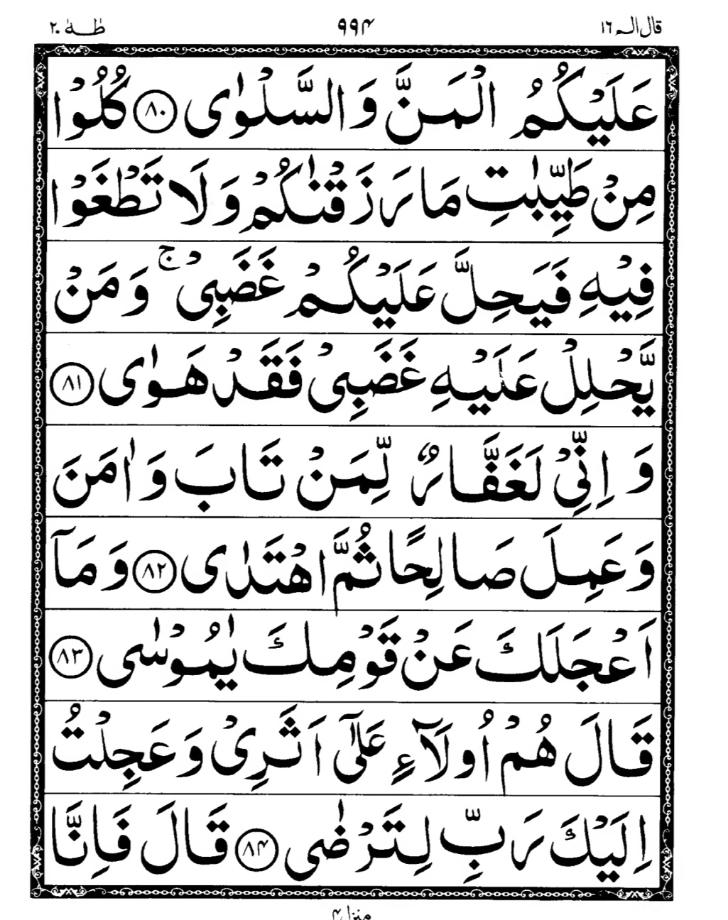 قال الم ١٦ ٩٩۴ طٰهٰ ٢٠
عَلَيْكُمُ الْمَنَّ وَالسَّلْوٰى ﴿٨٠﴾ كُلُوْا
مِنْ طَيِّبٰتِ مَا رَزَقْنٰكُمْ وَلَا تَطْغَوْا
فِيْهِ فَيَحِلَّ عَلَيْكُمْ غَضَبِىْ ۚ وَمَنْ
يَّحْلِلْ عَلَيْهِ غَضَبِىْ فَقَدْ هَوٰى ﴿٨١﴾
وَ اِنِّىْ لَغَفَّارٌ لِّمَنْ تَابَ وَاٰمَنَ
وَعَمِلَ صَالِحًا ثُمَّ اهْتَدٰى ﴿٨٢﴾ وَمَآ
اَعْجَلَكَ عَنْ قَوْمِكَ يٰمُوْسٰى ﴿٨٣﴾
قَالَ هُمْ اُولَآءِ عَلٰٓى اَثَرِىْ وَعَجِلْتُ
اِلَيْكَ رَبِّ لِتَرْضٰى ﴿٨۴﴾ قَالَ فَاِنَّا
منزل ۴